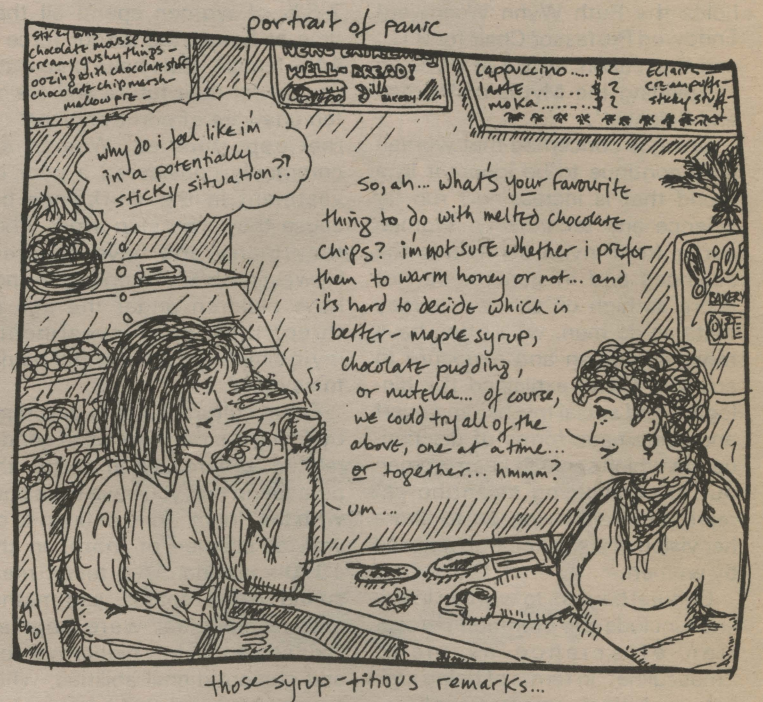 portrait of panic
sticky buns –
chocolate mousse cake
creamy gushy things –
oozing with chocolate stuff
chocolate chip marsh-
mallow pie –
WE'RE EXTREMELY
WELL-BREAD!
Jill's
BAKERY
cappuccino.... $2
latte....... $2
moka....... $2
Eclairs
creampuffs
sticky stuff
why do i feel like i'm
in a potentially
sticky situation??
So, ah... what's your favourite
thing to do with melted chocolate
chips? i'm not sure whether i prefer
them to warm honey or not... and
it's hard to decide which is
better – maple syrup,
chocolate pudding,
or nutella... of course,
we could try all of the
above, one at a time...
or together... hmmm?
um...
Jill
BAKERY
OPE
those syrup-titious remarks...